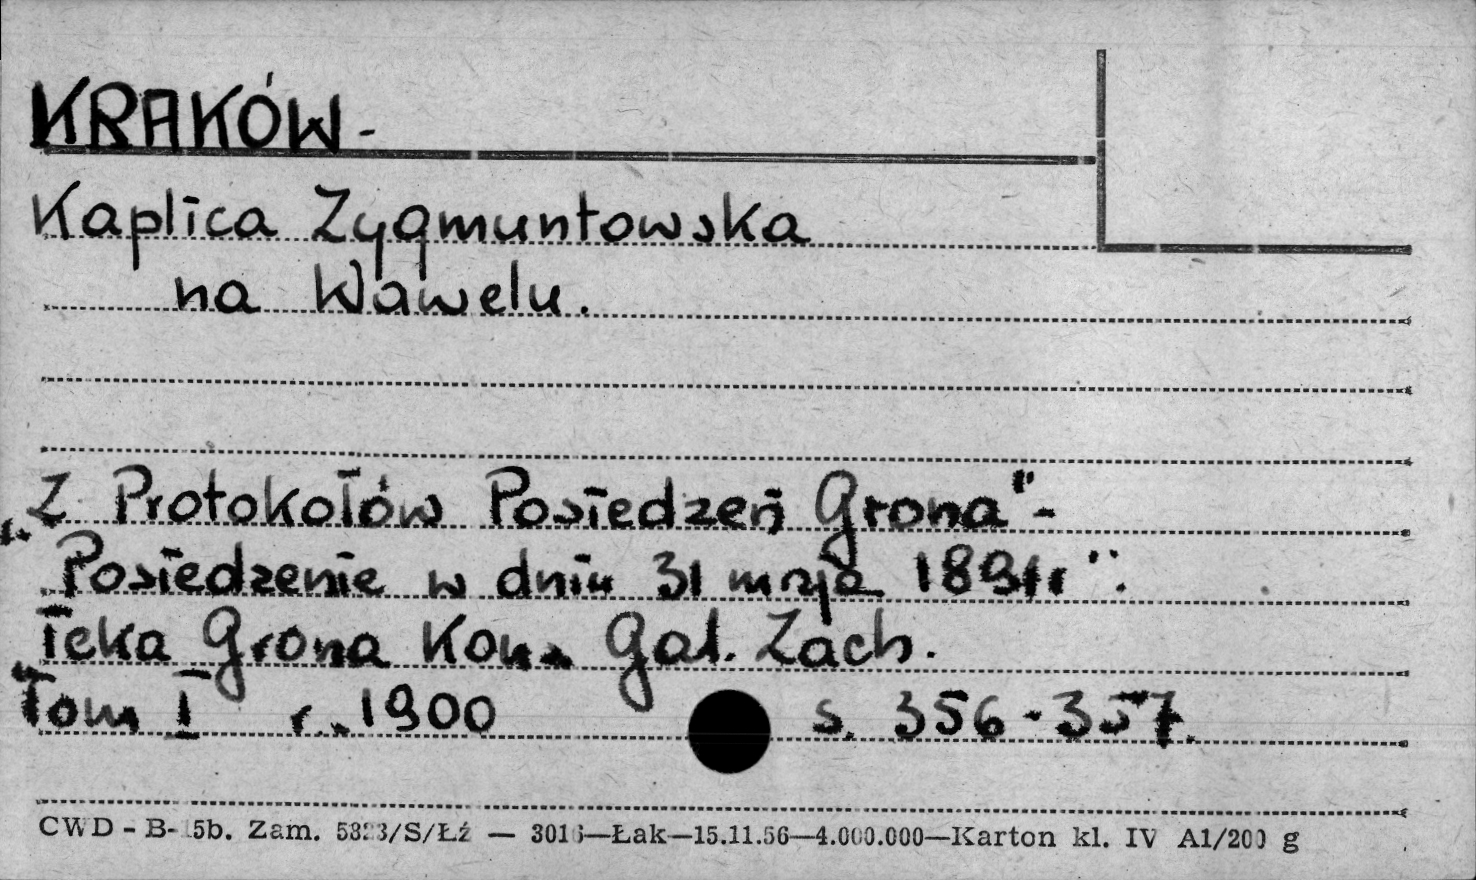 KRAKÓW -
Kaplica Zygmuntowska
na Wawelu.
"Z Protokołów Posiedzeń Grona" -
"Posiedzenie w dniu 31 maja 1891r".
Teka Grona Kon. Gal. Zach.
Tom I r. 1900 s. 356-357.
CWD - B- 5b. Zam. /S/Łź — —Łak—15.11.56—4.000.000—Karton kl. IV A1/200 g